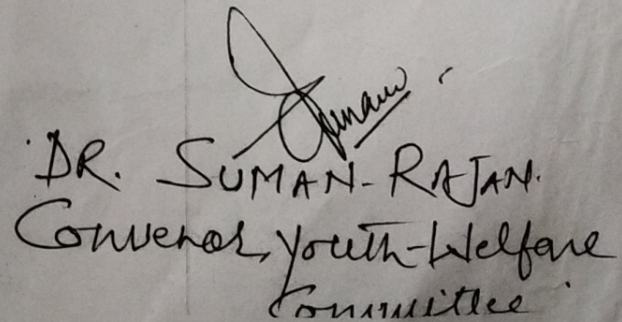 DR. SUMAN-RAJAN.
Convenor, Youth-Welfare
Committee